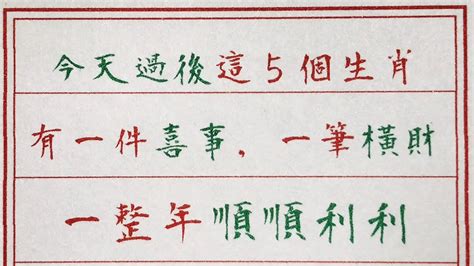 今天過後這5個生肖
有一件喜事，一筆橫財
一整年順順利利